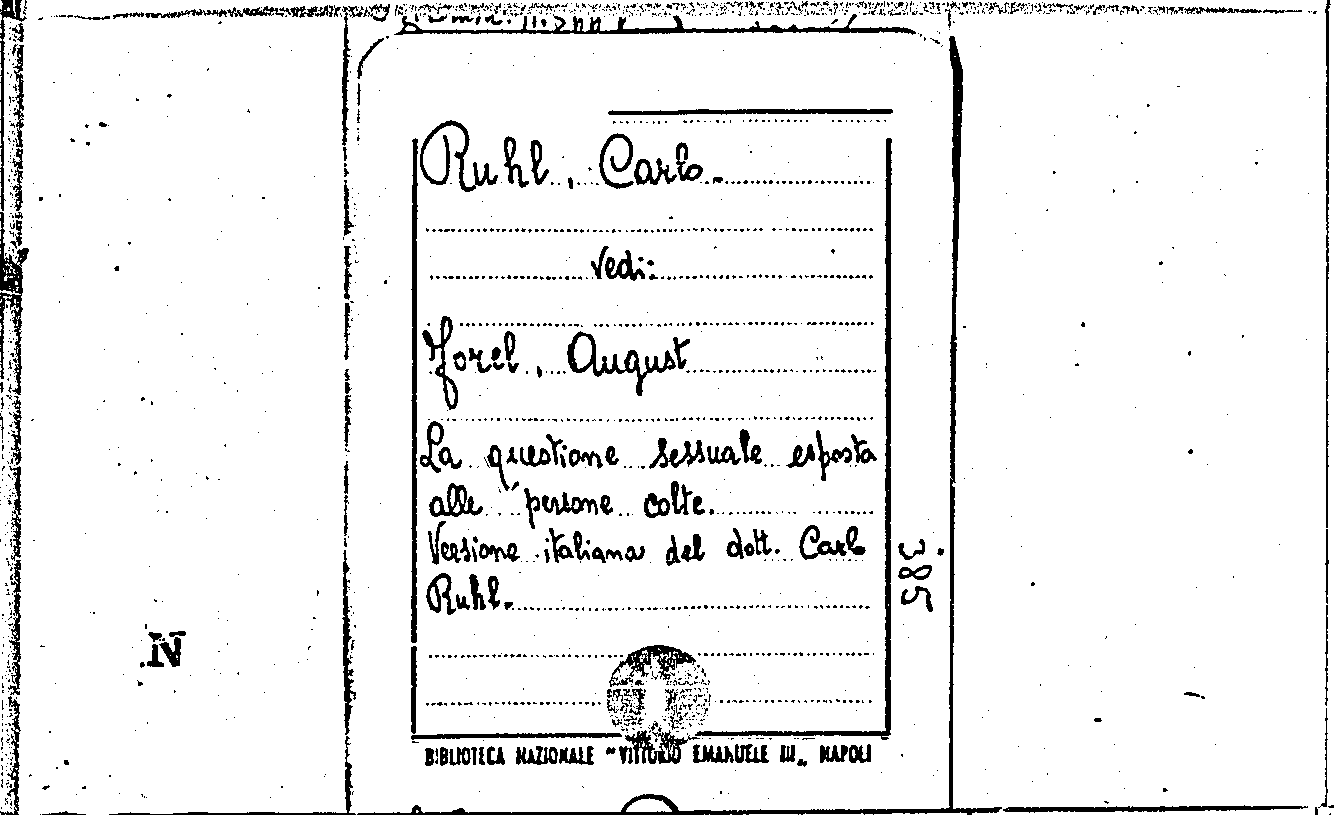 Ruhl, Carlo.
Vedi:
Forel, August
La questione sessuale esposta
alle persone colte.
Versione italiana del dott. Carlo
Ruhl.
385
N
BIBLIOTECA NAZIONALE "VITTORIO EMANUELE III„ NAPOLI